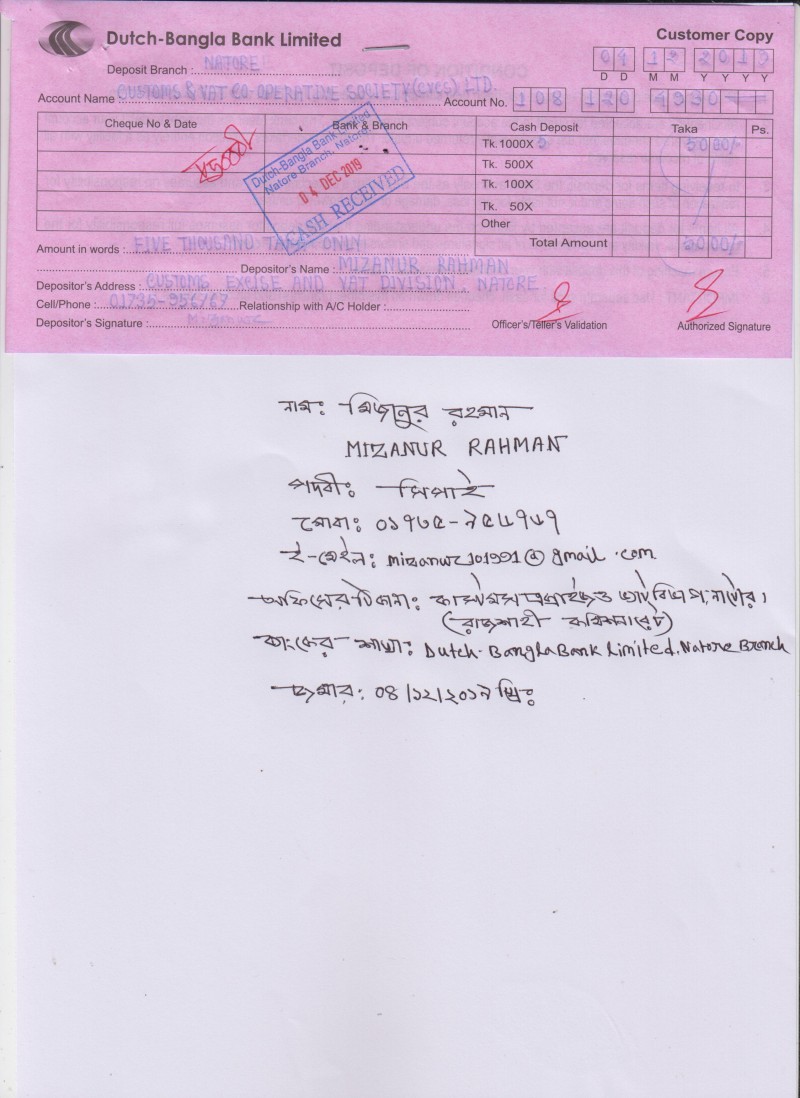 Dutch-Bangla Bank Limited
Customer Copy
Deposit Branch : NATORE
04 12 2019
D D M M Y Y Y Y
Account Name : CUSTOMS & VAT CO-OPERATIVE SOCIETY (CVCS) LTD.
Account No. 108 120 4930
Cheque No & Date Bank & Branch Cash Deposit Taka Ps.
Tk.1000X 5 5000/-
Tk. 500X
Tk. 100X
Tk. 50X
Other
Total Amount 5000/-
Dutch-Bangla Bank Limited
Natore Branch, Natore
04 DEC 2019
CASH RECEIVED
Amount in words : FIVE THOUSAND TAKA ONLY
Depositor's Name : MIZANUR RAHMAN
Depositor's Address : CUSTOMS EXCISE AND VAT DIVISION, NATORE
Cell/Phone : 01735-956767 Relationship with A/C Holder :
Depositor's Signature : Mizanur
Officer's/Teller's Validation
Authorized Signature
নাম: মিজানুর রহমান
MIZANUR RAHMAN
পদবী: সিপাই
মোবা: ০১৭৩৫-৯৫৬৭৬৭
ই-মেইল: mizanur101991@gmail.com
অফিসের ঠিকানা: কাস্টমস এক্সাইজ ও ভ্যাট বিভাগ, নাটোর।
(রাজশাহী কমিশনারেট)
ব্যাংকের শাখা: Dutch-Bangla Bank Limited, Natore Branch
জমার: ০৪/১২/২০১৯ খ্রিঃ